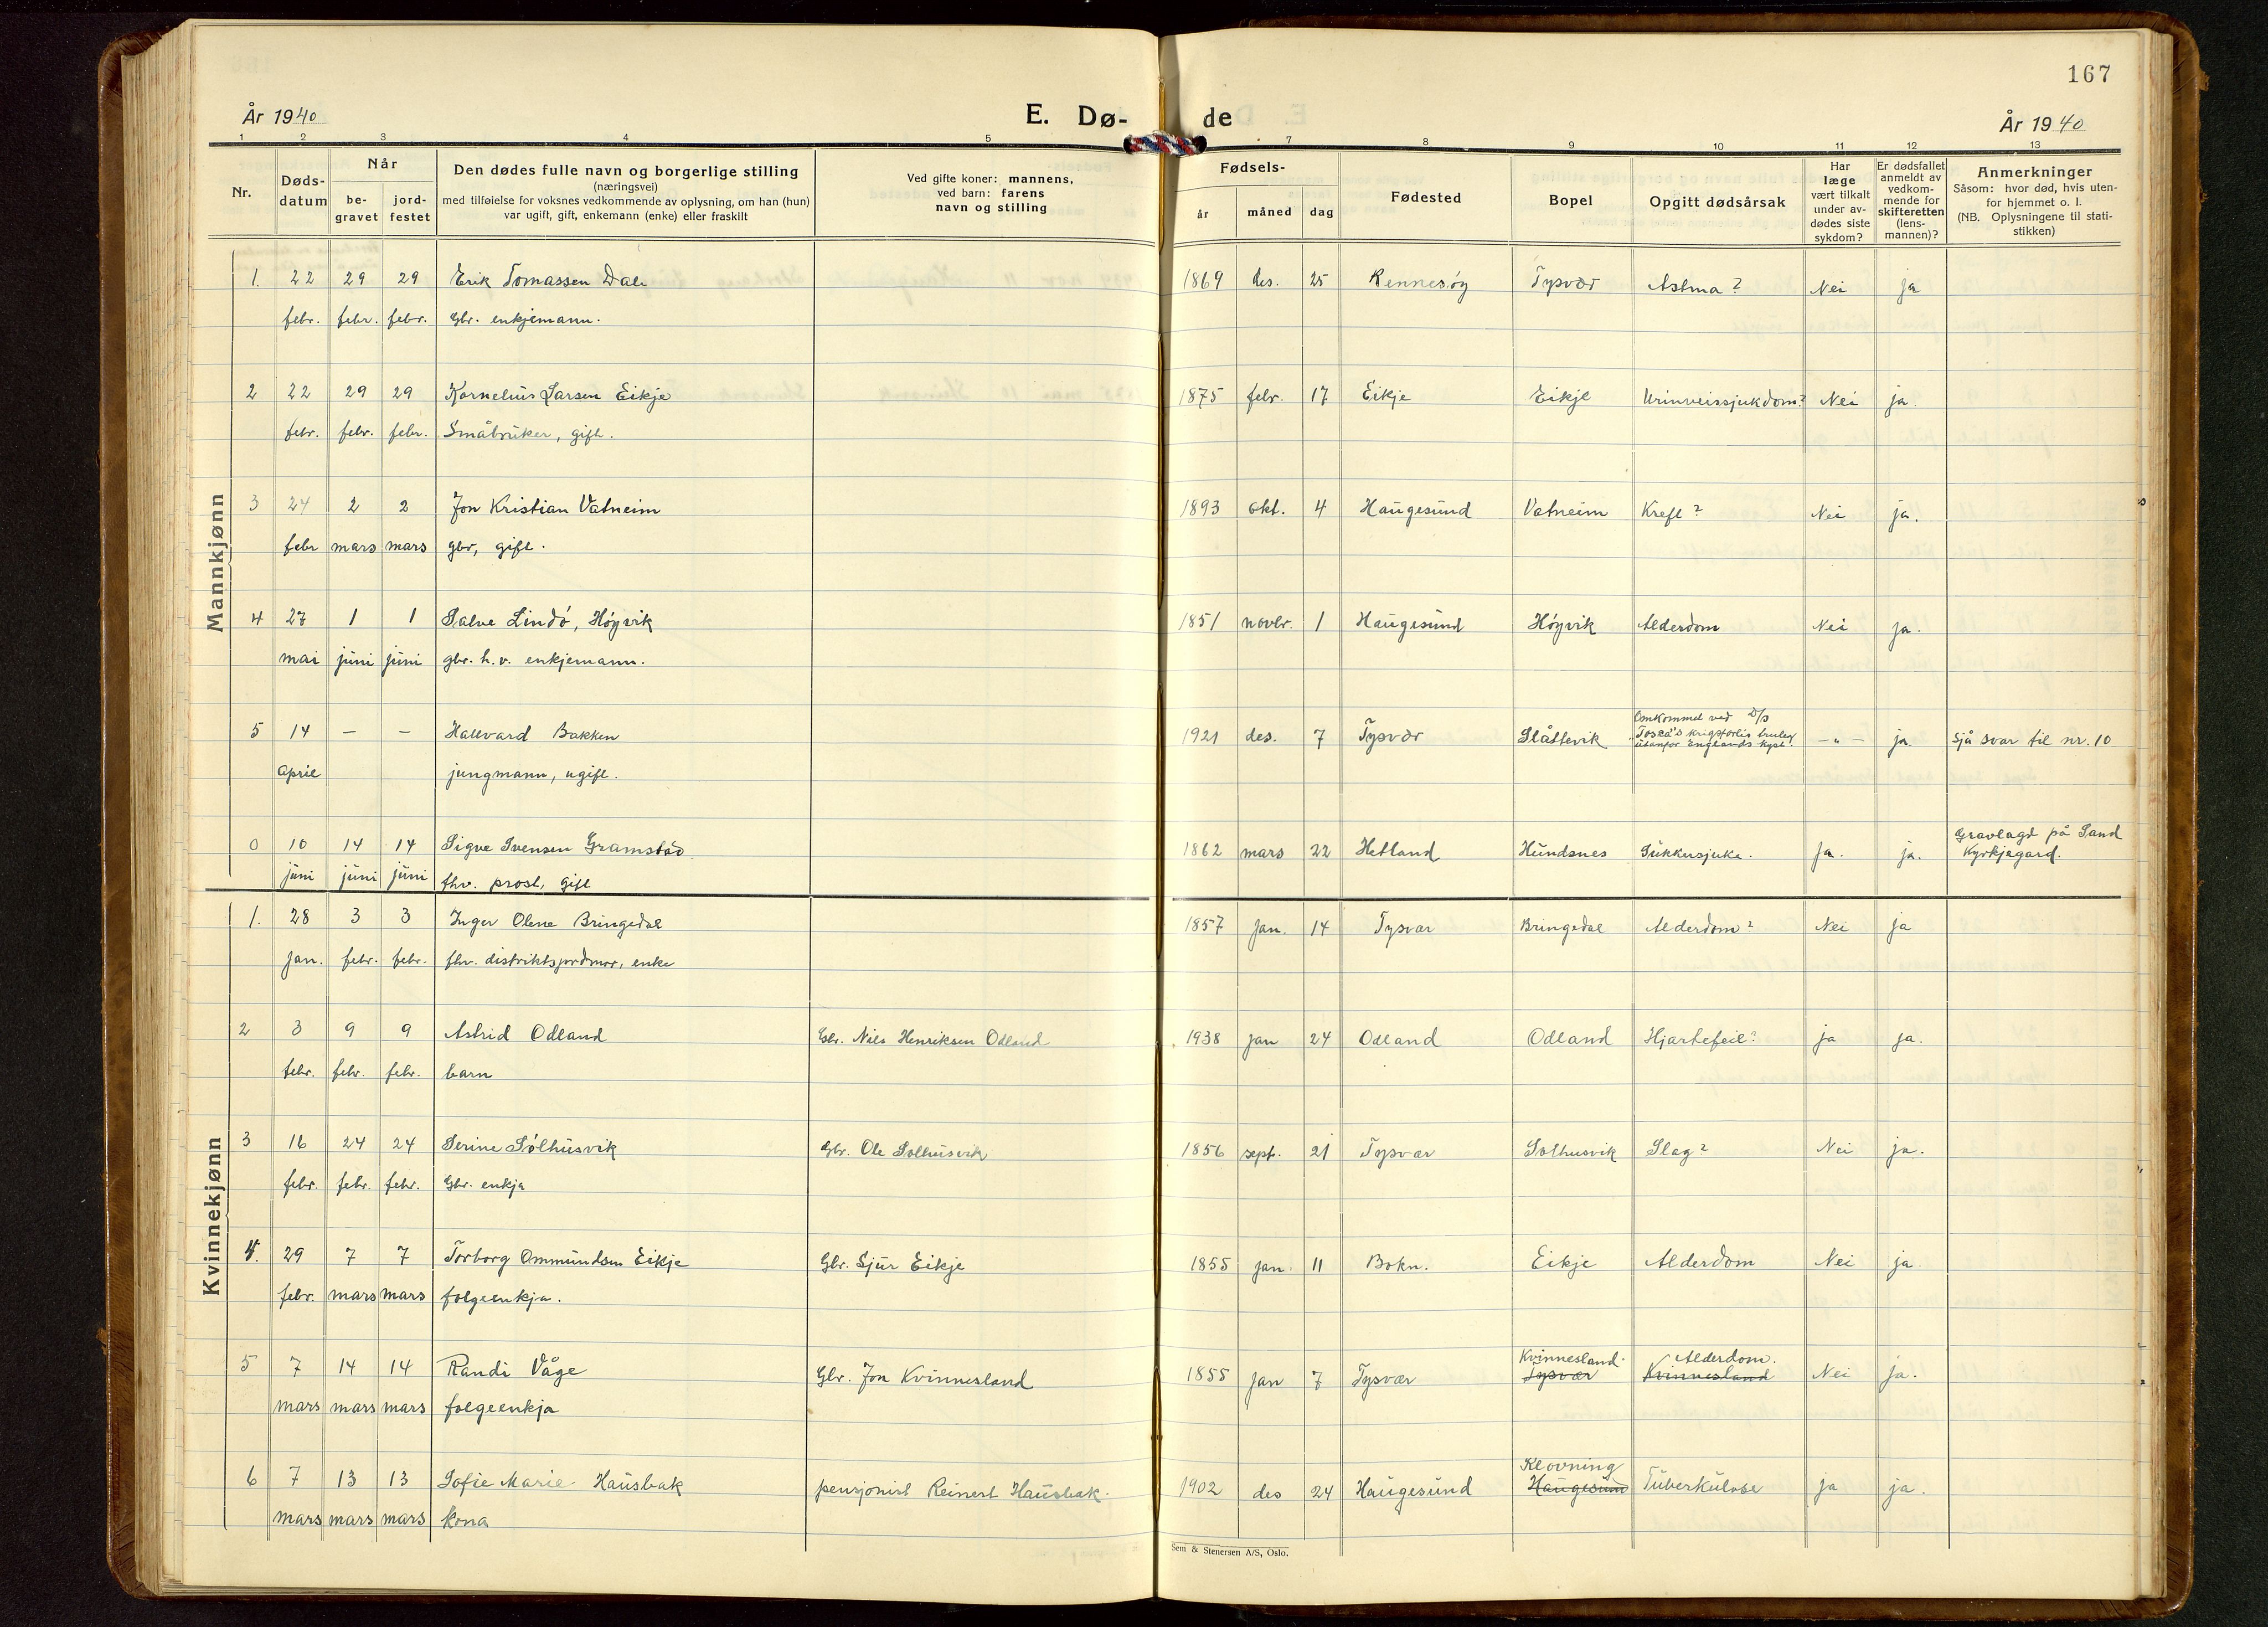 167
År 1940
E. Dø-
de
År 1940
1 2 3 4 5 7 8 9 10 11 12 13
Nr.
Døds-
datum
Når
be-
gravet
jord-
festet
Den dødes fulle navn og borgerlige stilling
(næringsvei)
med tilføielse for voksnes vedkommende av oplysning, om han (hun)
var ugift, gift, enkemann (enke) eller fraskilt
Ved gifte koner: mannens,
ved barn: farens
navn og stilling
Fødsels-
år måned dag
Fødested
Bopel
Opgitt dødsårsak
Har
læge
vært tilkalt
under av-
dødes siste
sykdom?
Er dødsfallet
anmeldt av
vedkom-
mende for
skifteretten
(lens-
mannen)?
Anmerkninger
Såsom: hvor død, hvis uten-
for hjemmet o. l.
(NB. Oplysningene til stati-
stikken)
Mannkjønn
1. 22 29 29 Erik Tomassen Dale 1869 des. 25 Rennesøy Tysvær Astma? Nei ja
febr. febr. febr. Gbr. enkjemann.
2 22 29 29 Kornelius Larsen Eikje 1875 febr. 17 Eikje Eikje Urinveissjukdom? Nei ja.
febr. febr. febr. Småbruker, gift.
3 24 2 2 Jon Kristian Vatneim 1893 okt. 4 Haugesund Vatneim Kreft? Nei ja.
febr mars mars gbr, gift.
4 27 1 1 Salve Lindö, Höyvik 1851 novbr. 1 Haugesund Höyvik Alderdom Nei ja.
mai juni juni gbr. h.v. enkjemann.
5 14 — — Hallvard Bakken 1921 des. 7 Tysvær Slåttevik Omkommet ved D/s
Tosca's krigsforlis truleg
utanfor Englands kyst. —"— ja. Sjå svar til nr. 10
April jungmann, ugift.
0 10 14 14 Sigve Svensen Gramstad 1862 mars 22 Hetland Hundsnes Sukkersjuke. Ja. ja. Gravlagd på Sand
Kyrkjegard.
juni juni juni fhv. prost, gift
Kvinnekjønn
1. 28 3 3 Inger Olene Bringedal 1857 jan. 14 Tysvær Bringedal Alderdom? Nei ja
jan. febr. febr. fhv. distriktsjordmor, enke
2 3 9 9 Astrid Odland Gbr. Nils Henriksen Odland 1938 jan 24 Odland Odland Hjartefeil? ja ja.
febr. febr. febr. barn
3 16 24 24 Serine Sölhusvik Gbr. Ole Solhusvik 1856 sept. 21 Tysvær Solhusvik Slag? Nei ja.
febr. febr. febr. Gbr. enkja
4. 29 7 7 Torborg Ommundsen Eikje Gbr. Sjur Eikje 1855 jan. 11 Bokn. Eikje Alderdom Nei ja.
febr. mars mars folgeenkja.
Kvinnesland. Alderdom.
5 7 14 14 Randi Våge Gbr. Jon Kvinnesland 1855 jan 7 Tysvær Tysvær Kvinnesland Nei ja.
mars mars mars folgeenkja
Klovning
6 7 13 13 Sofie Marie Hausbak pensjonist Reinert Hausbak. 1902 des 24 Haugesund Haugesund Tuberkulose ja ja.
mars mars mars kona
Sem & Stenersen A/S, Oslo.